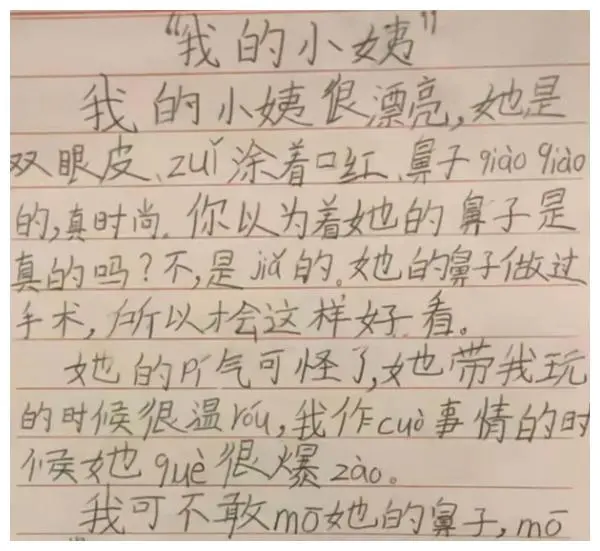 "我的小姨"
我的小姨很漂亮,她是
双眼皮、zuǐ涂着口红、鼻子qiào qiào
的,真时尚.你以为着她的鼻子是
真的吗?不,是jiǎ的。她的鼻子做过
手术,所以才会这样好看。
她的pí气可怪了,她带我玩
的时候很温róu,我作cuò事情的时
候她què很爆zào。
我可不敢mō她的鼻子,mō